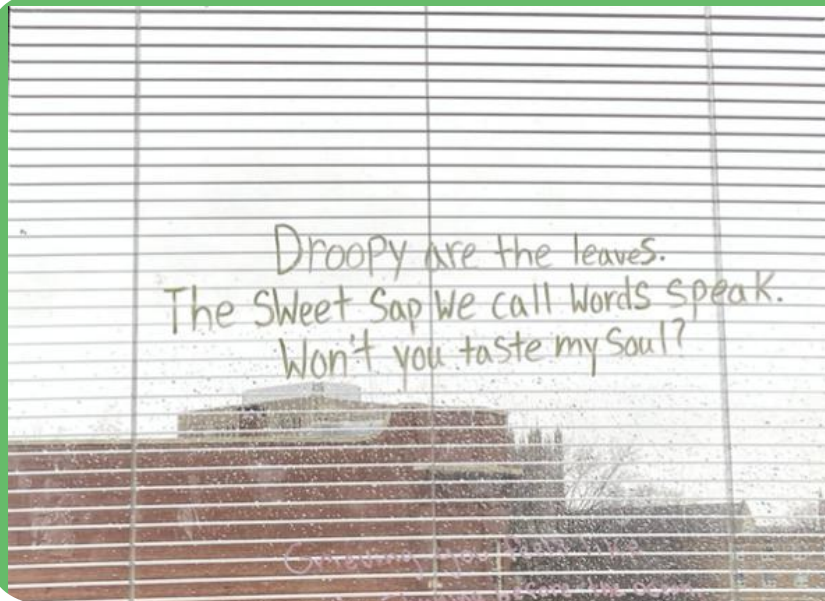 Droopy are the leaves.
The Sweet Sap We call Words speak.
Won't you taste my Soul?